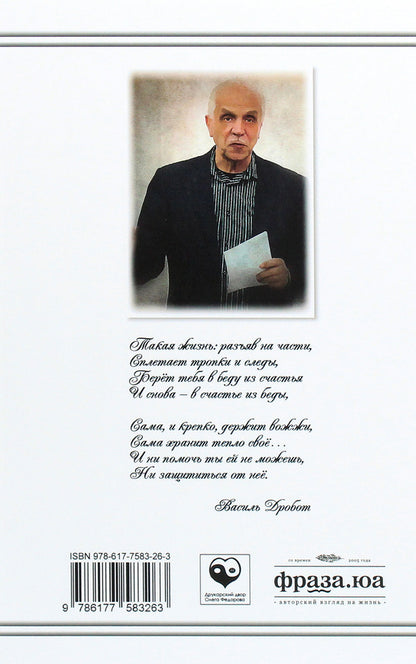 Такая жизнь: разъяв на части,
Сплетает тропки и следы,
Берёт тебя в беду из счастья
И снова – в счастье из беды,
Сама, и крепко, держит вожжи,
Сама хранит тепло своё...
И ни помочь ты ей не можешь,
Ни защититься от неё.
Василь Дробот
ISBN 978-617-7583-26-3
9 786177 583263
Друкарский двор
Олега Федорова
со времен 2005 года
фраза.юа
- авторский взгляд на жизнь -